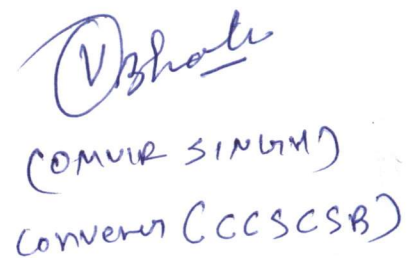 (OMVIR SINGH)
Convener (CCSCSB)